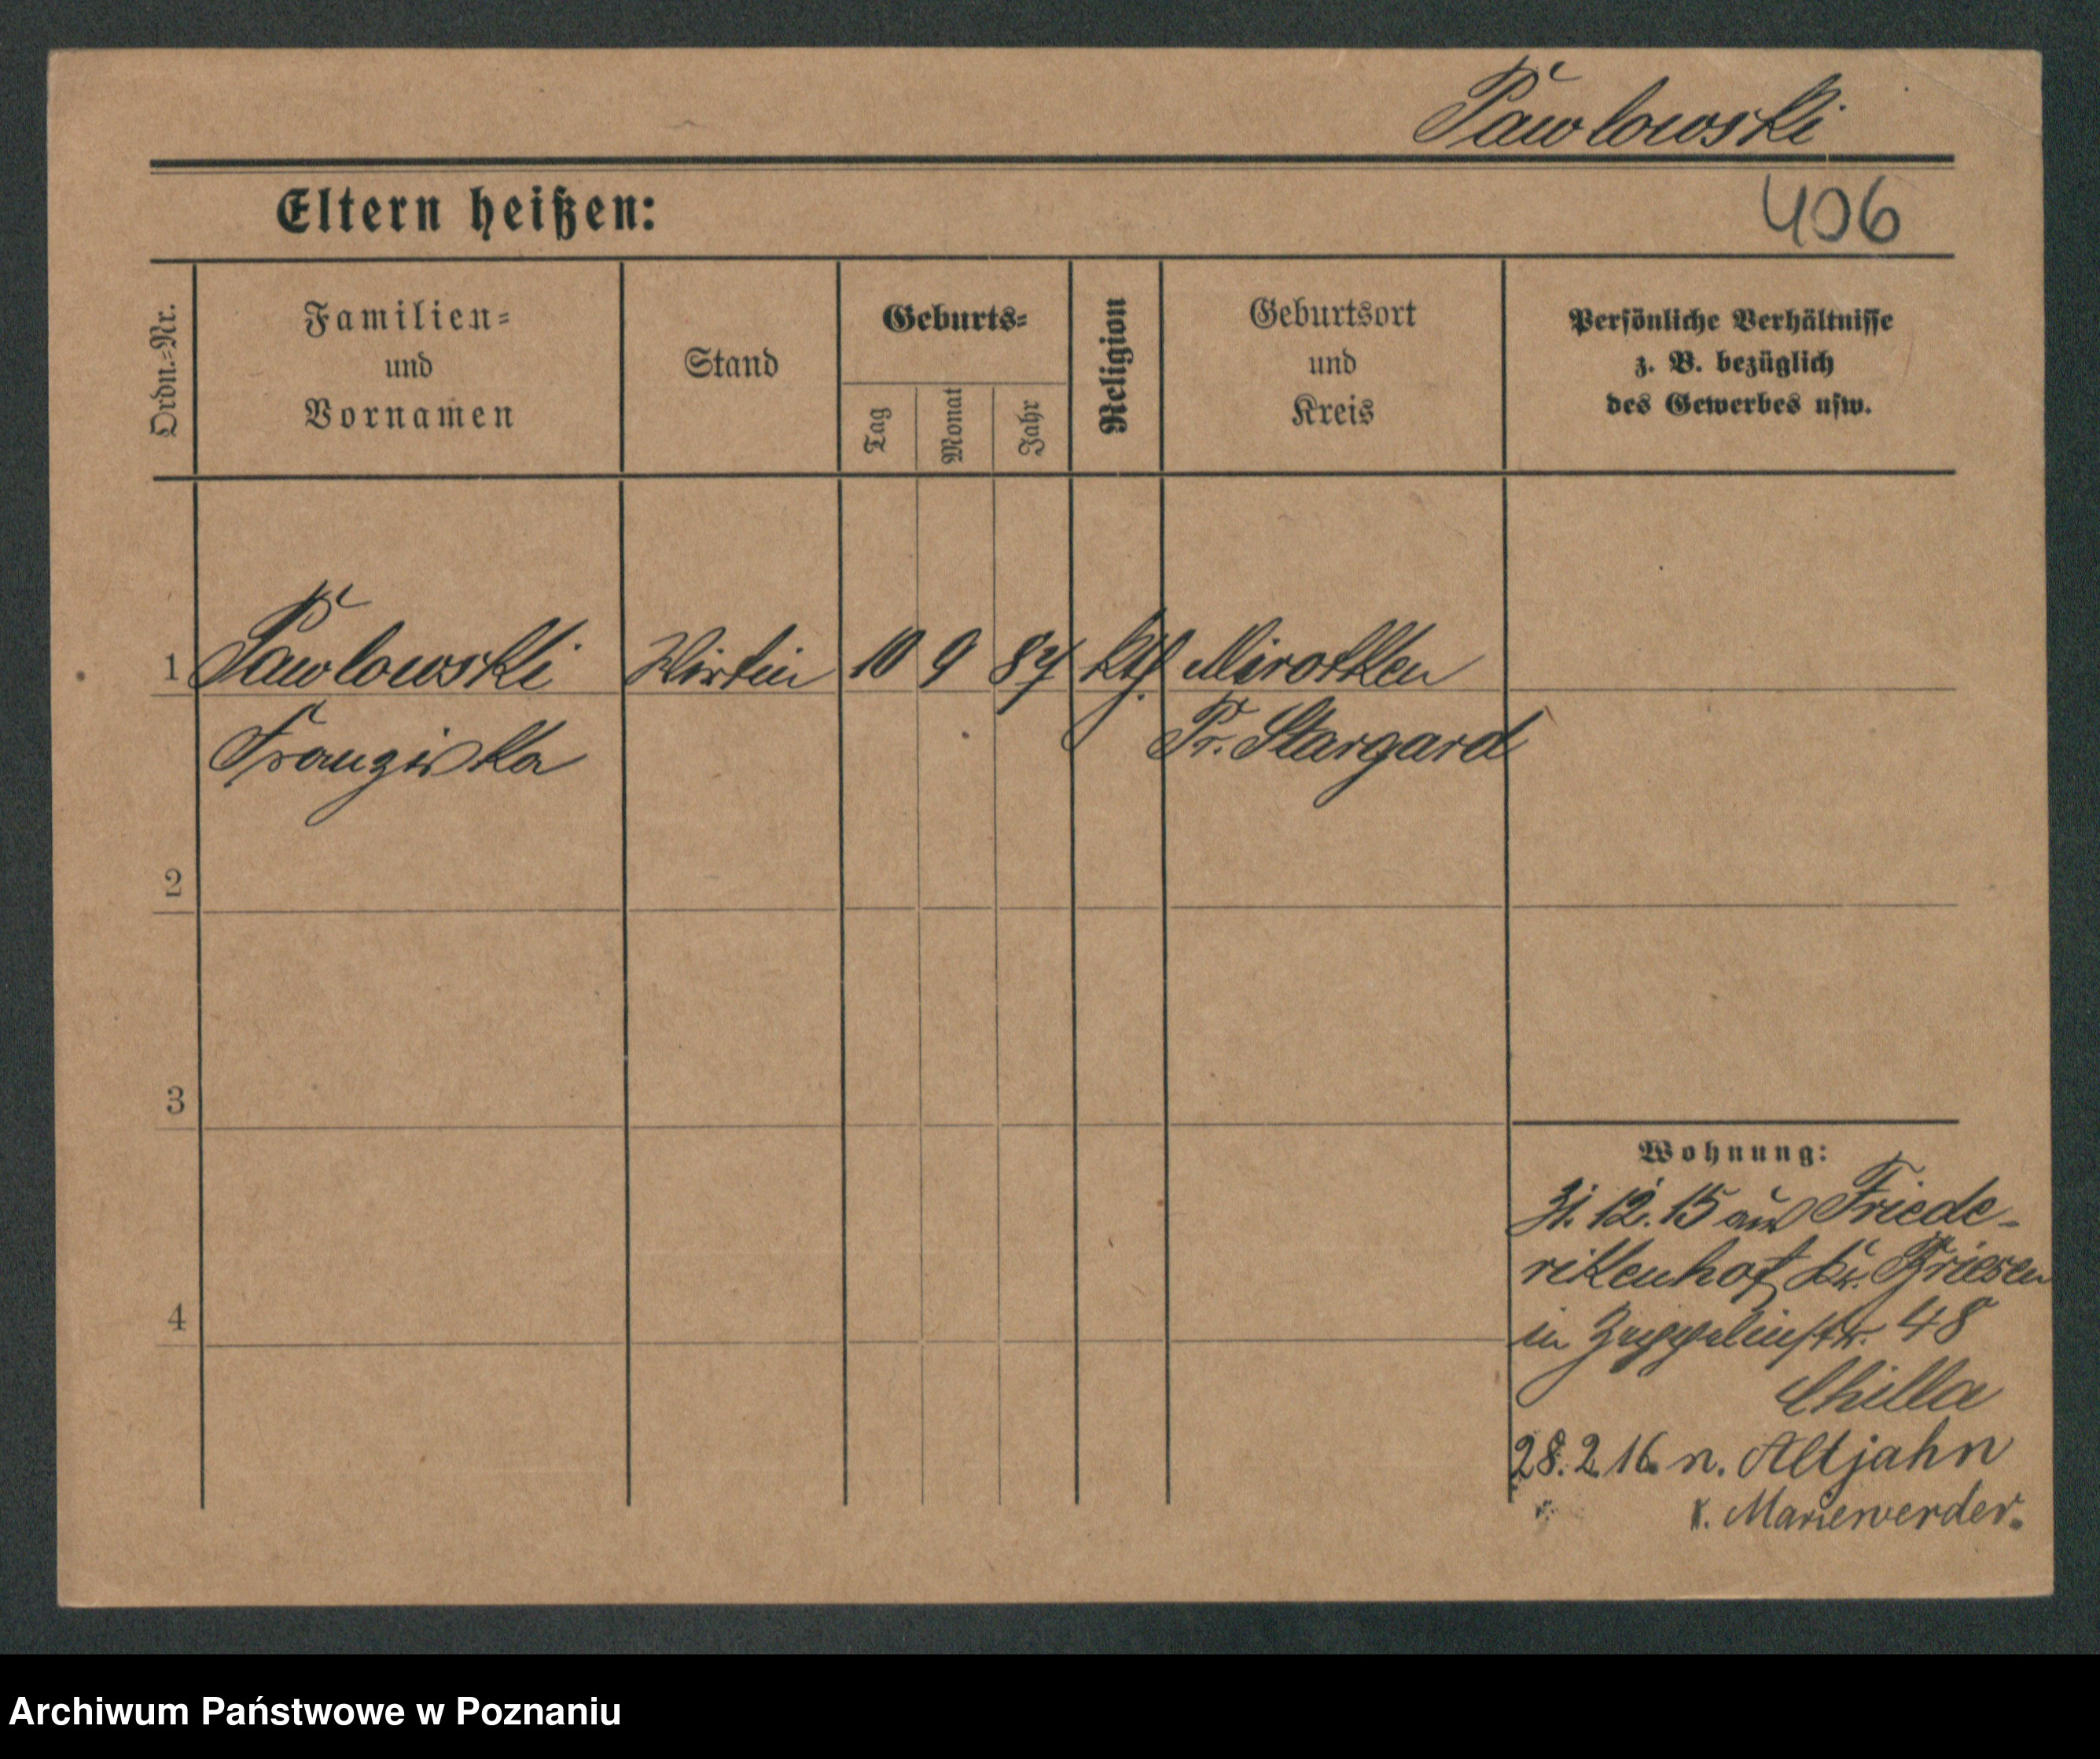 Pawlowski
Eltern heißen:
406
Ordn.=Nr.
Familien=
und
Vornamen
Stand
Geburts=
Tag
Monat
Jahr
Religion
Geburtsort
und
Kreis
Persönliche Verhältnisse
z. B. bezüglich
des Gewerbes usw.
1 Pawlowski Wirtin 10 9 87 kth Mirotken
Franziska Pr. Stargard
2
3
4
Wohnung:
31. 12. 15 aus Friede-
rikenhof Kr. Briesen
in Zeppelinstr. 48
28. 2. 16. n. Altjahn
K. Marienwerder.
Archiwum Państwowe w Poznaniu